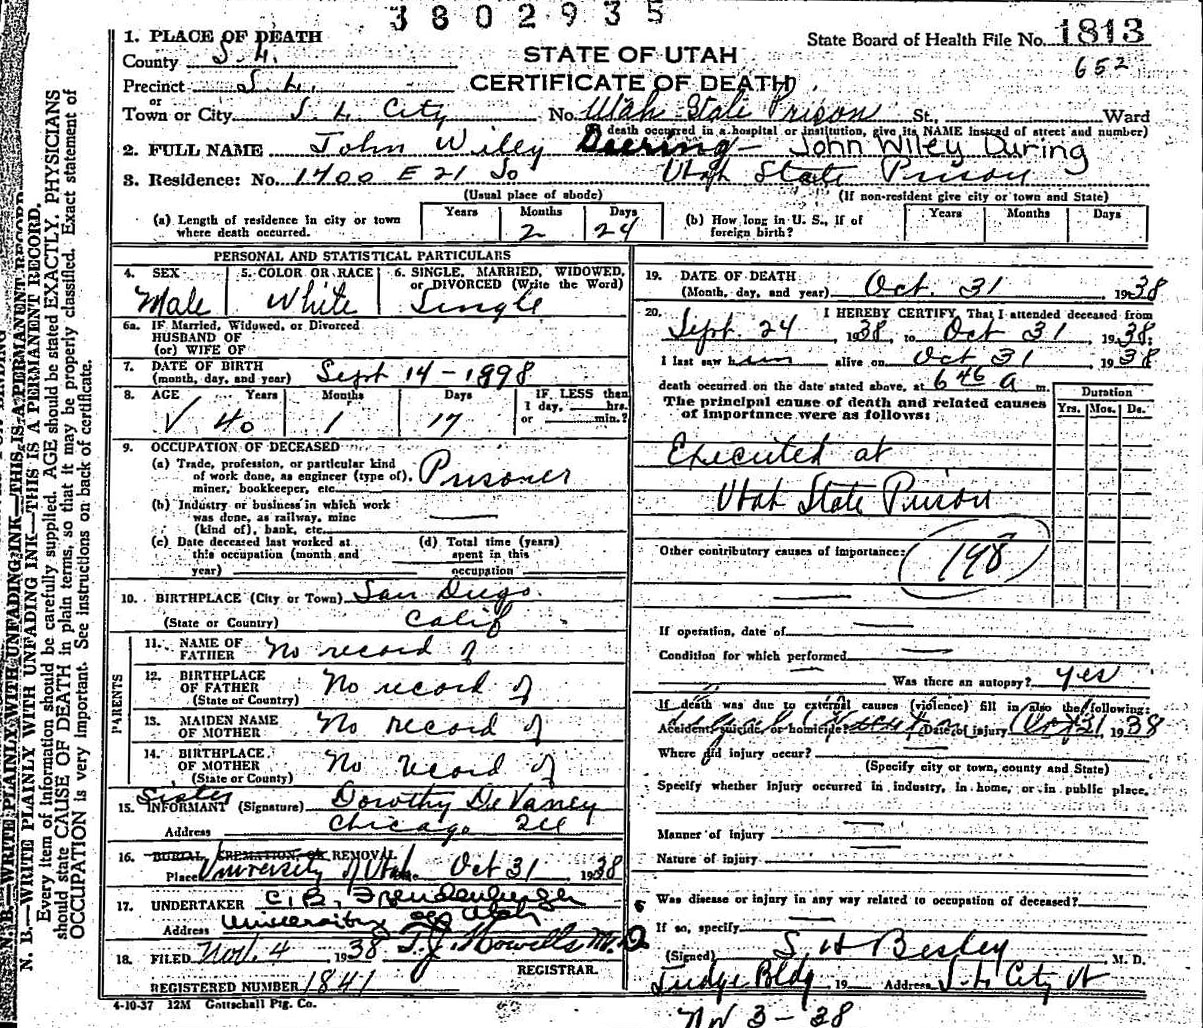 3802935
1. PLACE OF DEATH
State Board of Health File No. 1813
County S. L.
STATE OF UTAH
652
Precinct S. L.
CERTIFICATE OF DEATH
or
Town or City S L City No. Utah State Prison St. Ward
(If death occurred in a hospital or institution, give its NAME instead of street and number)
2. FULL NAME John Wiley Deering - John Wiley During
3. Residence: No. 1400 E 21 So Utah State Prison
(Usual place of abode) (If non-resident give city or town and State)
(a) Length of residence in city or town where death occurred. Years Months 2 Days 24
(b) How long in U. S., if of foreign birth? Years Months Days
PERSONAL AND STATISTICAL PARTICULARS
4. SEX Male
5. COLOR OR RACE White
6. SINGLE, MARRIED, WIDOWED, or DIVORCED (Write the Word) Single
6a. IF Married, Widowed, or Divorced
HUSBAND OF
(or) WIFE OF
7. DATE OF BIRTH
(month, day, and year) Sept 14-1898
8. AGE Years 40 Months 1 Days 17 IF LESS than
1 day, hrs.
or min.?
9. OCCUPATION OF DECEASED
(a) Trade, profession, or particular kind
of work done, as engineer (type of), Prisoner
miner, bookkeeper, etc.
(b) Industry or business in which work
was done, as railway, mine
(kind of), bank, etc.
(c) Date deceased last worked at
this occupation (month and
year)
(d) Total time (years)
spent in this
occupation
10. BIRTHPLACE (City or Town) San Diego
(State or Country) Calif
PARENTS
11. NAME OF
FATHER No record of
12. BIRTHPLACE
OF FATHER No record of
(State or Country)
13. MAIDEN NAME
OF MOTHER No record of
14. BIRTHPLACE
OF MOTHER No record of
(State or County)
Sister
15. INFORMANT (Signature) Dorothy DeVaney
Address Chicago Ill
16. BURIAL, CREMATION, OR REMOVAL
Place University of Utah Oct 31 1938
17. UNDERTAKER C.B. Freudenberger
Address University of Utah
18. FILED Nov. 4 1938 T.J. Howells M.D.
REGISTRAR.
REGISTERED NUMBER 1841
4-10-37 12M Gottschall Ptg. Co.
19. DATE OF DEATH
(Month, day, and year) Oct. 31 1938
20. I HEREBY CERTIFY, That I attended deceased from
Sept. 24 1938, to Oct 31 1938;
I last saw him alive on Oct 31 1938
death occurred on the date stated above, at 646 a m.
The principal cause of death and related causes
of importance were as follows:
Duration
Yrs. Mos. Ds.
Executed at
Utah State Prison
Other contributory causes of importance:
198
If operation, date of
Condition for which performed
Was there an autopsy? yes
If death was due to external causes (violence) fill in also the following:
Accident, suicide, or homicide? Legal Execution Date of injury Oct 31 1938
Where did injury occur?
(Specify city or town, county and State)
Specify whether injury occurred in industry, in home, or in public place.
Manner of injury
Nature of injury
Was disease or injury in any way related to occupation of deceased?
If so, specify
(Signed) S H Besley M. D.
Judge Bldg 19 Address S. L. City Ut
Nov 3-38
N. B.—WRITE PLAINLY WITH UNFADING INK—THIS IS A PERMANENT RECORD.
N. B.—WRITE PLAINLY WITH UNFADING INK—THIS IS A PERMANENT RECORD.
Every item of information should be carefully supplied. AGE should be stated EXACTLY. PHYSICIANS
should state CAUSE OF DEATH in plain terms, so that it may be properly classified. Exact statement of
OCCUPATION is very important. See instructions on back of certificate.